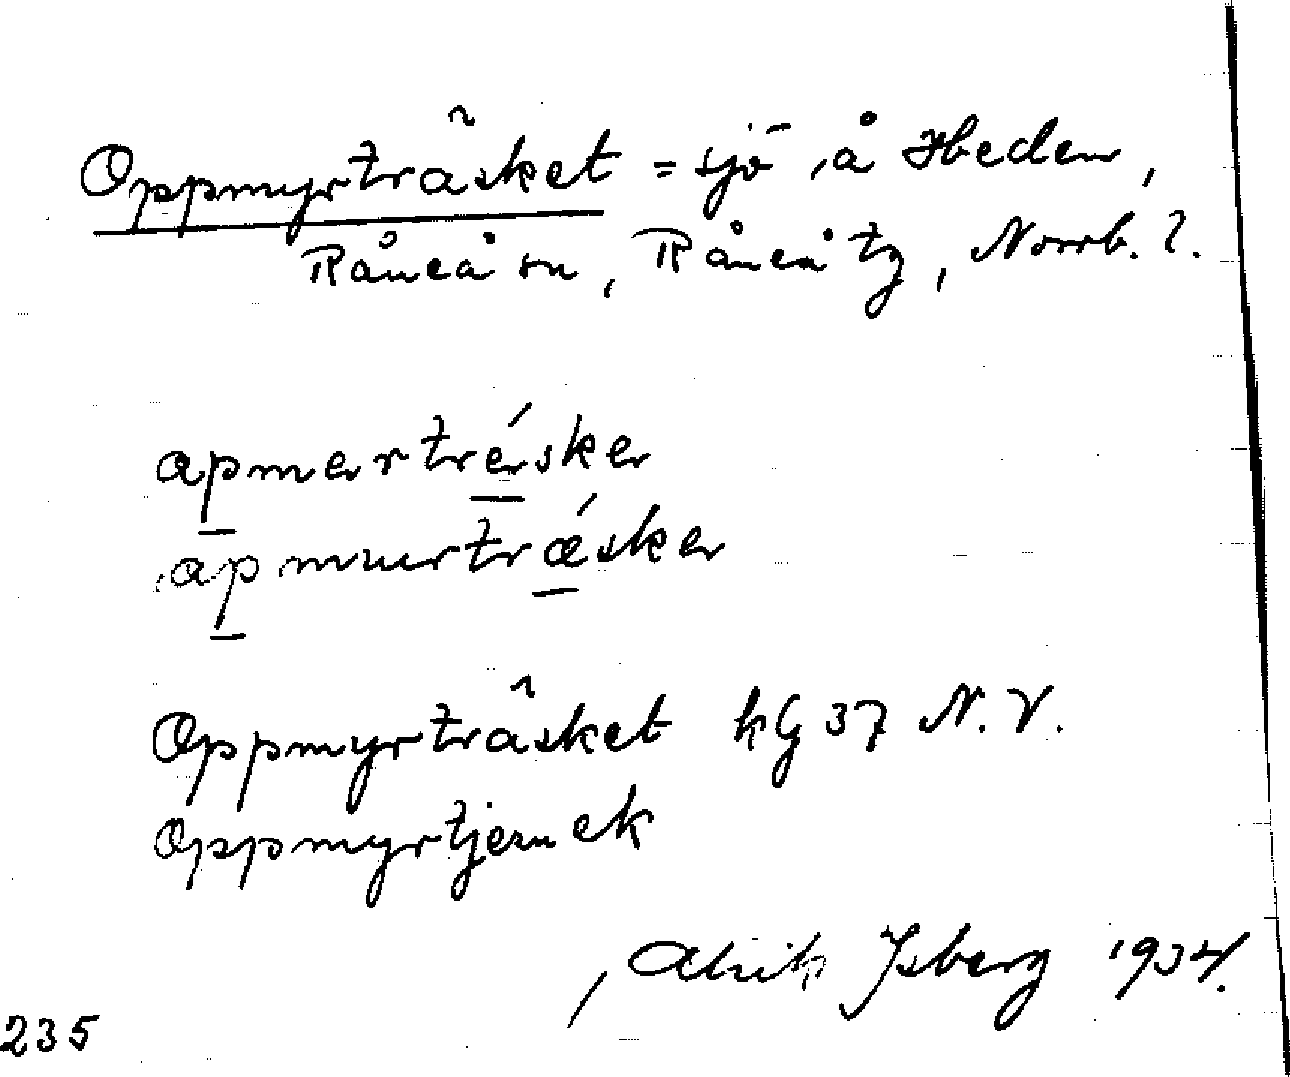 Oppmyrträsket = sjö å Heden,
Råneå sn, Råneå tg, Norrb. l.
apmertrésker
apmurtrǽsker
Oppmyrträsket kG 37 N.V.
Oppmyrtjern ek
Alrik Isberg 1934.
235